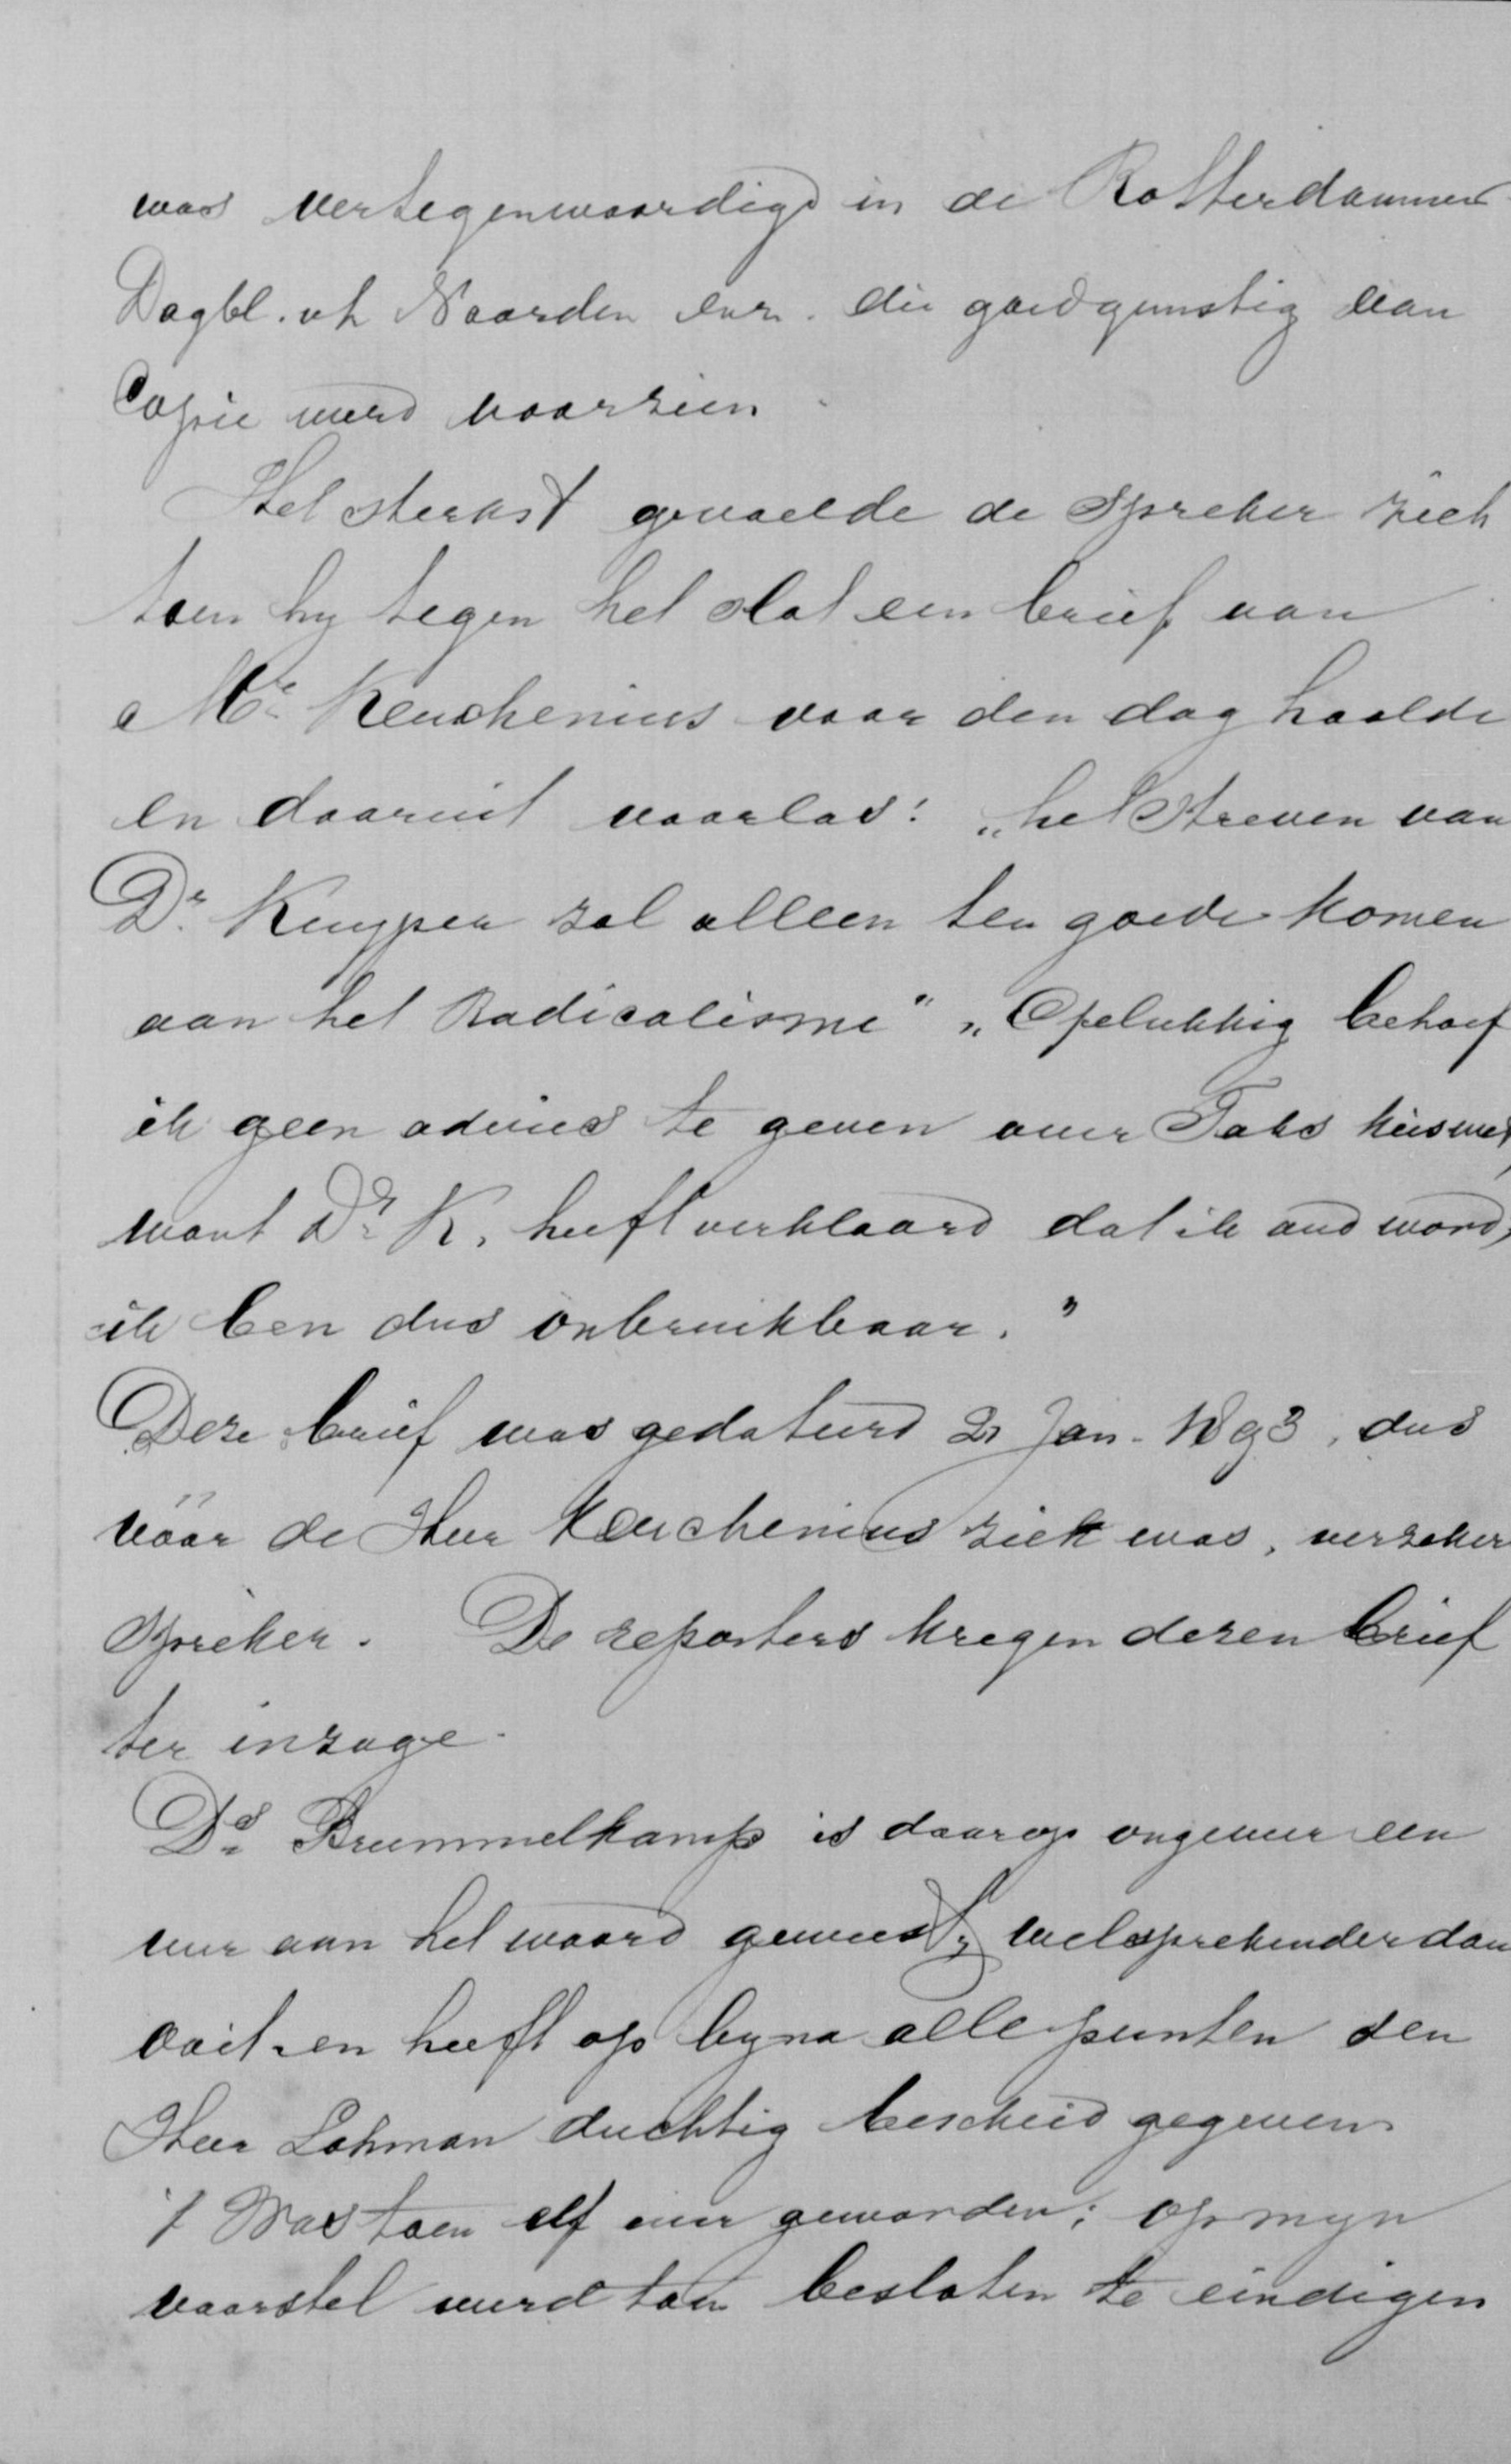 was vertegenwoordigd in de Rotterdammer
Dagbl. v h Noorden enz. die goedgunstig van
Copie werd voorzien.
Het sterkst gevoelde de Spreker zich
toen hy tegen het slot een brief van
Mr. Keuchenius voor den dag haalde
en daaruit voorlas: „het Streven van
Dr. Kuyper zal alleen ten goede komen
aan het Radicalisme" „Gelukkig behoef
ik geen advies te geven over Taks kieswet,
want Dr. K. heeft verklaard dat ik oud word,
ik ben dus onbruikbaar."
Deze brief was gedateerd 2 Jan. 1893, dus
vóór de Heer Keuchenius ziek was, verzeker
Spreker. De reporters kregen dezen brief
ter inzage.
Ds. Brummelkamp is daarop ongeveer een
uur aan het woord geweest, welsprekender dan
ooit en heeft op byna alle punten den
Heer Lohman duchtig bescheid gegeven
't Was toen elf uur geworden; op myn
voorstel werd toen besloten te eindigen